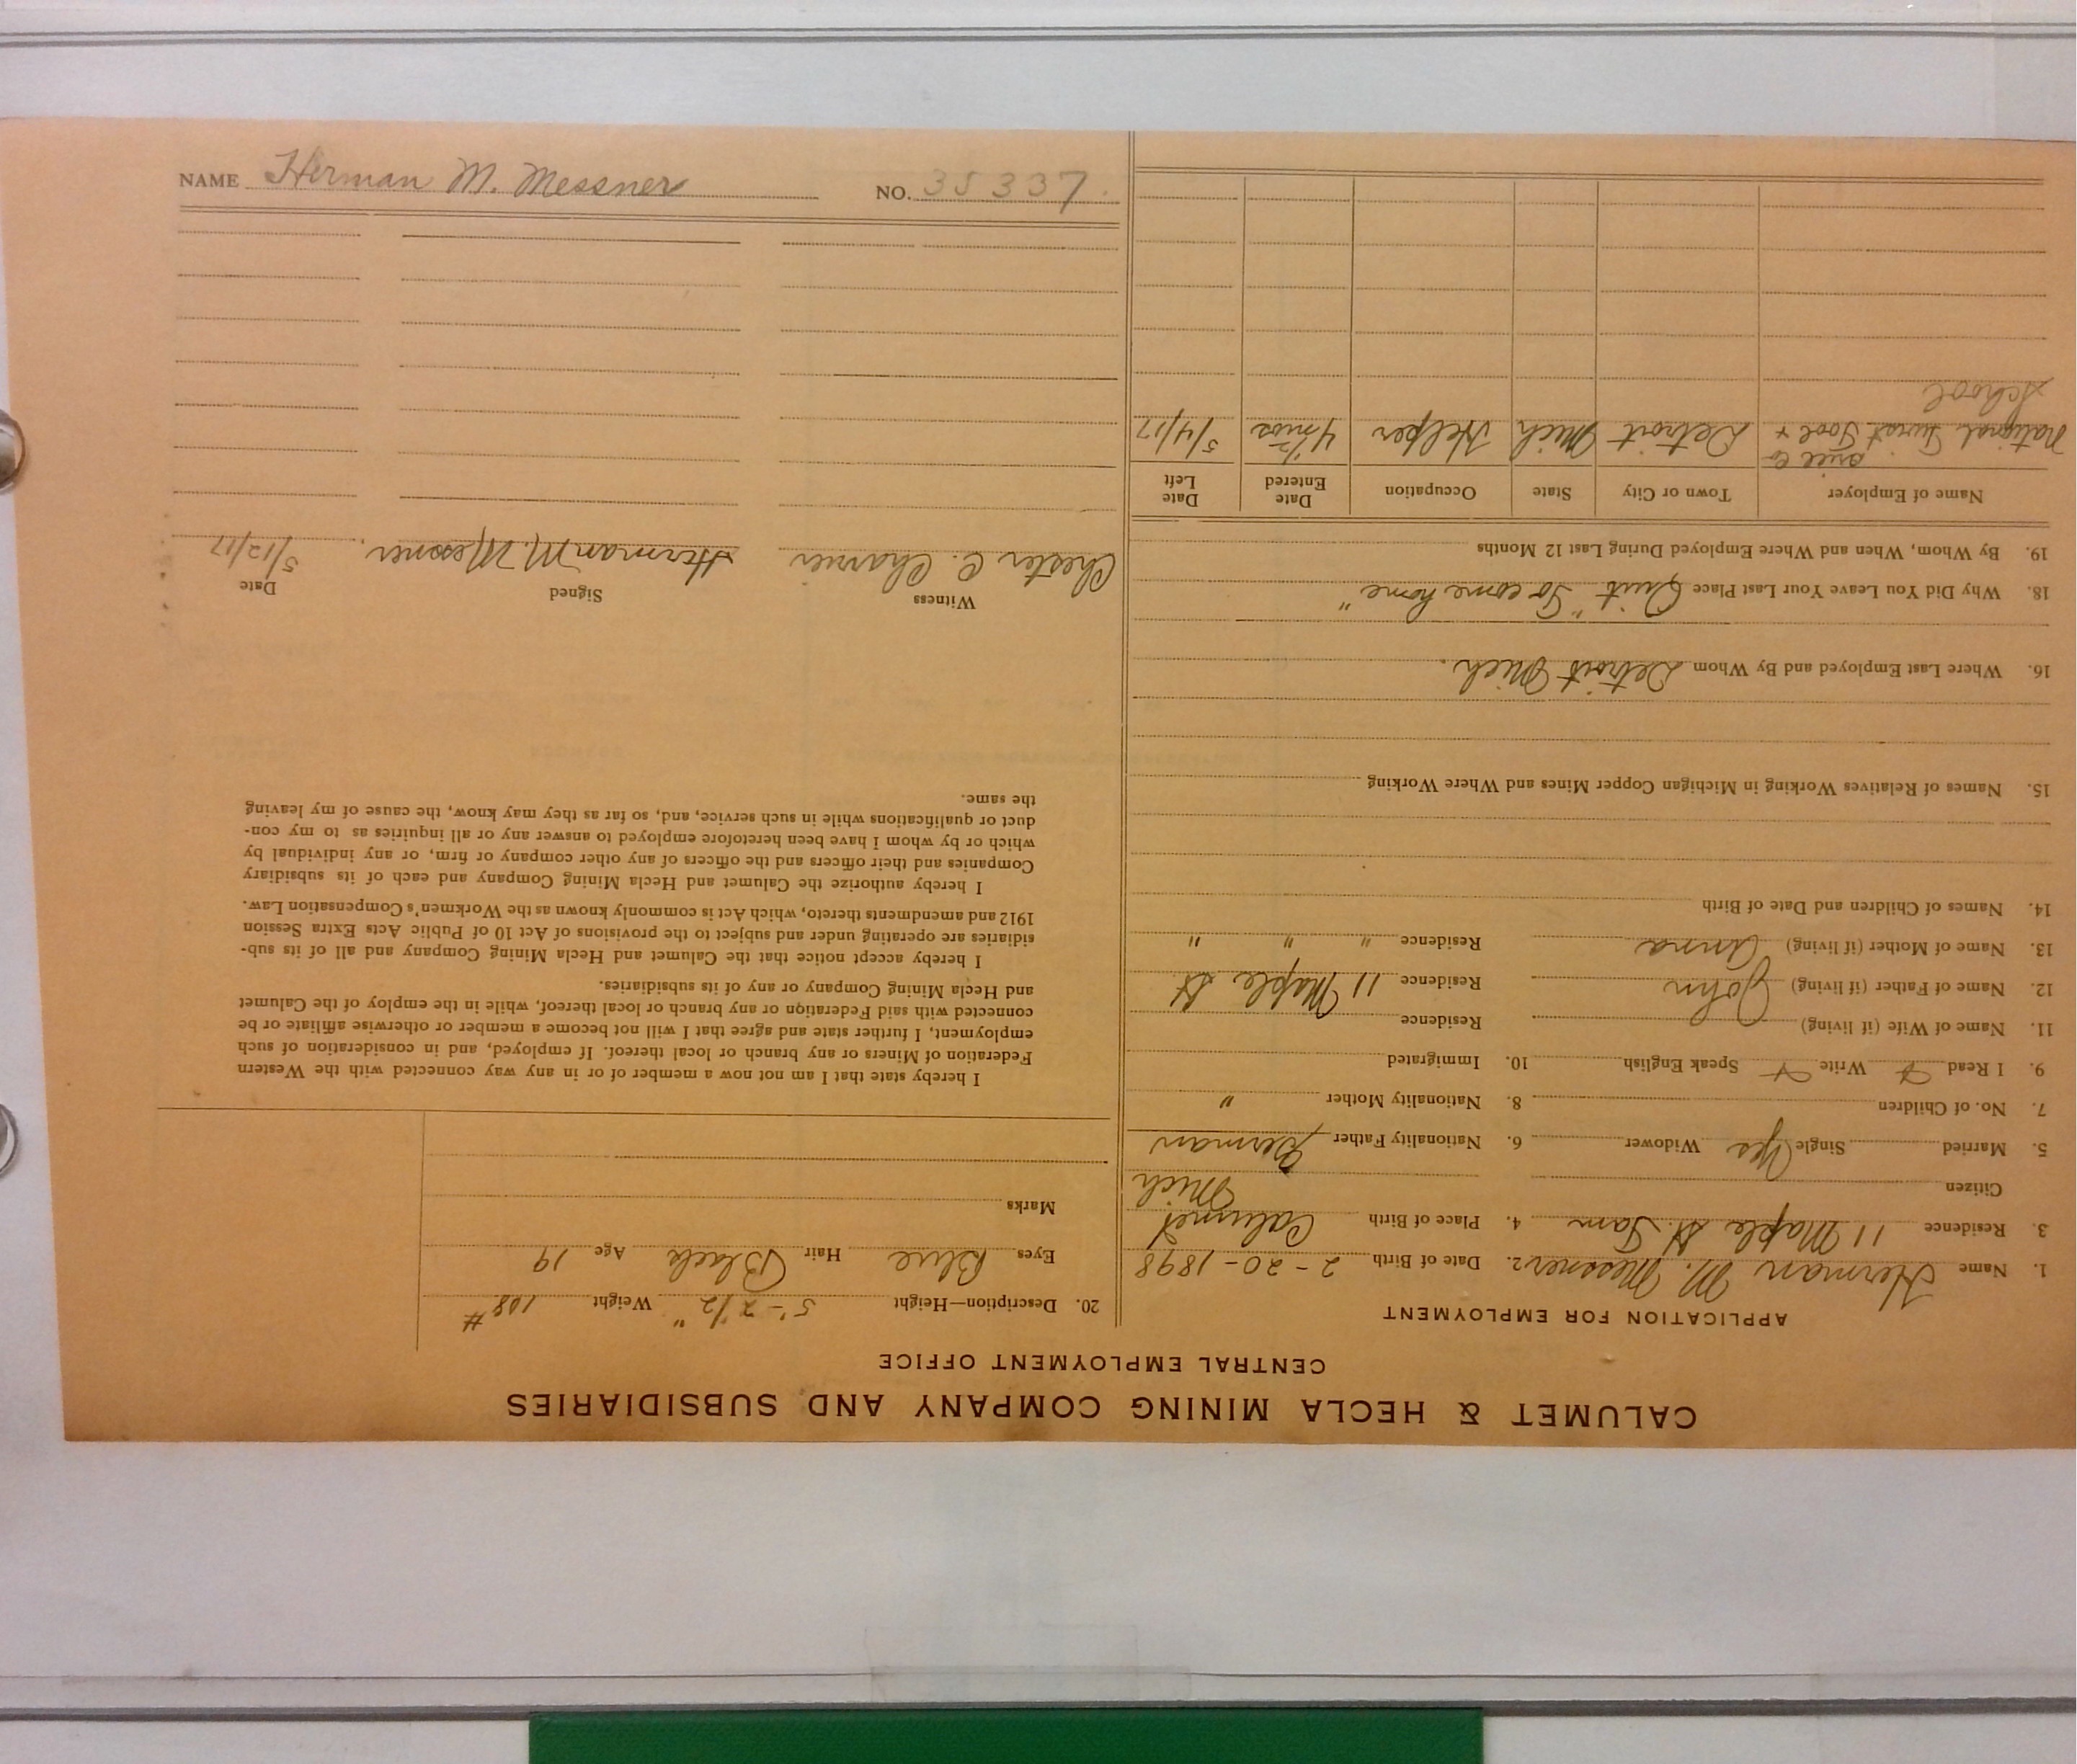 CALUMET & HECLA MINING COMPANY AND SUBSIDIARIES
CENTRAL EMPLOYMENT OFFICE
APPLICATION FOR EMPLOYMENT
1. Name Herman M. Messner 2. Date of Birth 2-20-1898
3. Residence 11 Maple St. Lam 4. Place of Birth Calumet
Citizen Mich
5. Married Single Yes Widower 6. Nationality Father German
7. No. of Children 8. Nationality Mother "
9. I Read + Write + Speak English 10. Immigrated
11. Name of Wife (if living) Residence
12. Name of Father (if living) John Residence 11 Maple St.
13. Name of Mother (if living) Anna Residence " " "
14. Names of Children and Date of Birth
15. Names of Relatives Working in Michigan Copper Mines and Where Working
16. Where Last Employed and By Whom Detroit Mich.
18. Why Did You Leave Your Last Place Quit "To come home"
19. By Whom, When and Where Employed During Last 12 Months
Name of Employer Town or City State Occupation Date Entered Date Left
National Twist Drill Co
Tool & Detroit Mich Helper 4 1/2 mos 5/4/17
School
20. Description—Height 5'-2 1/2" Weight 108#
Eyes Blue Hair Black Age 19
Marks
I hereby state that I am not now a member of or in any way connected with the Western
Federation of Miners or any branch or local thereof. If employed, and in consideration of such
employment, I further state and agree that I will not become a member or otherwise affiliate or be
connected with said Federation or any branch or local thereof, while in the employ of the Calumet
and Hecla Mining Company or any of its subsidiaries.
I hereby accept notice that the Calumet and Hecla Mining Company and all of its sub-
sidiaries are operating under and subject to the provisions of Act 10 of Public Acts Extra Session
1912 and amendments thereto, which Act is commonly known as the Workmen's Compensation Law.
I hereby authorize the Calumet and Hecla Mining Company and each of its subsidiary
Companies and their officers and the officers of any other company or firm, or any individual by
which or by whom I have been heretofore employed to answer any or all inquiries as to my con-
duct or qualifications while in such service, and, so far as they may know, the cause of my leaving
the same.
Witness Signed Date
Chester C. Charrier Herman M. Messner. 5/12/17
NAME Herman M. Messner NO. 35337